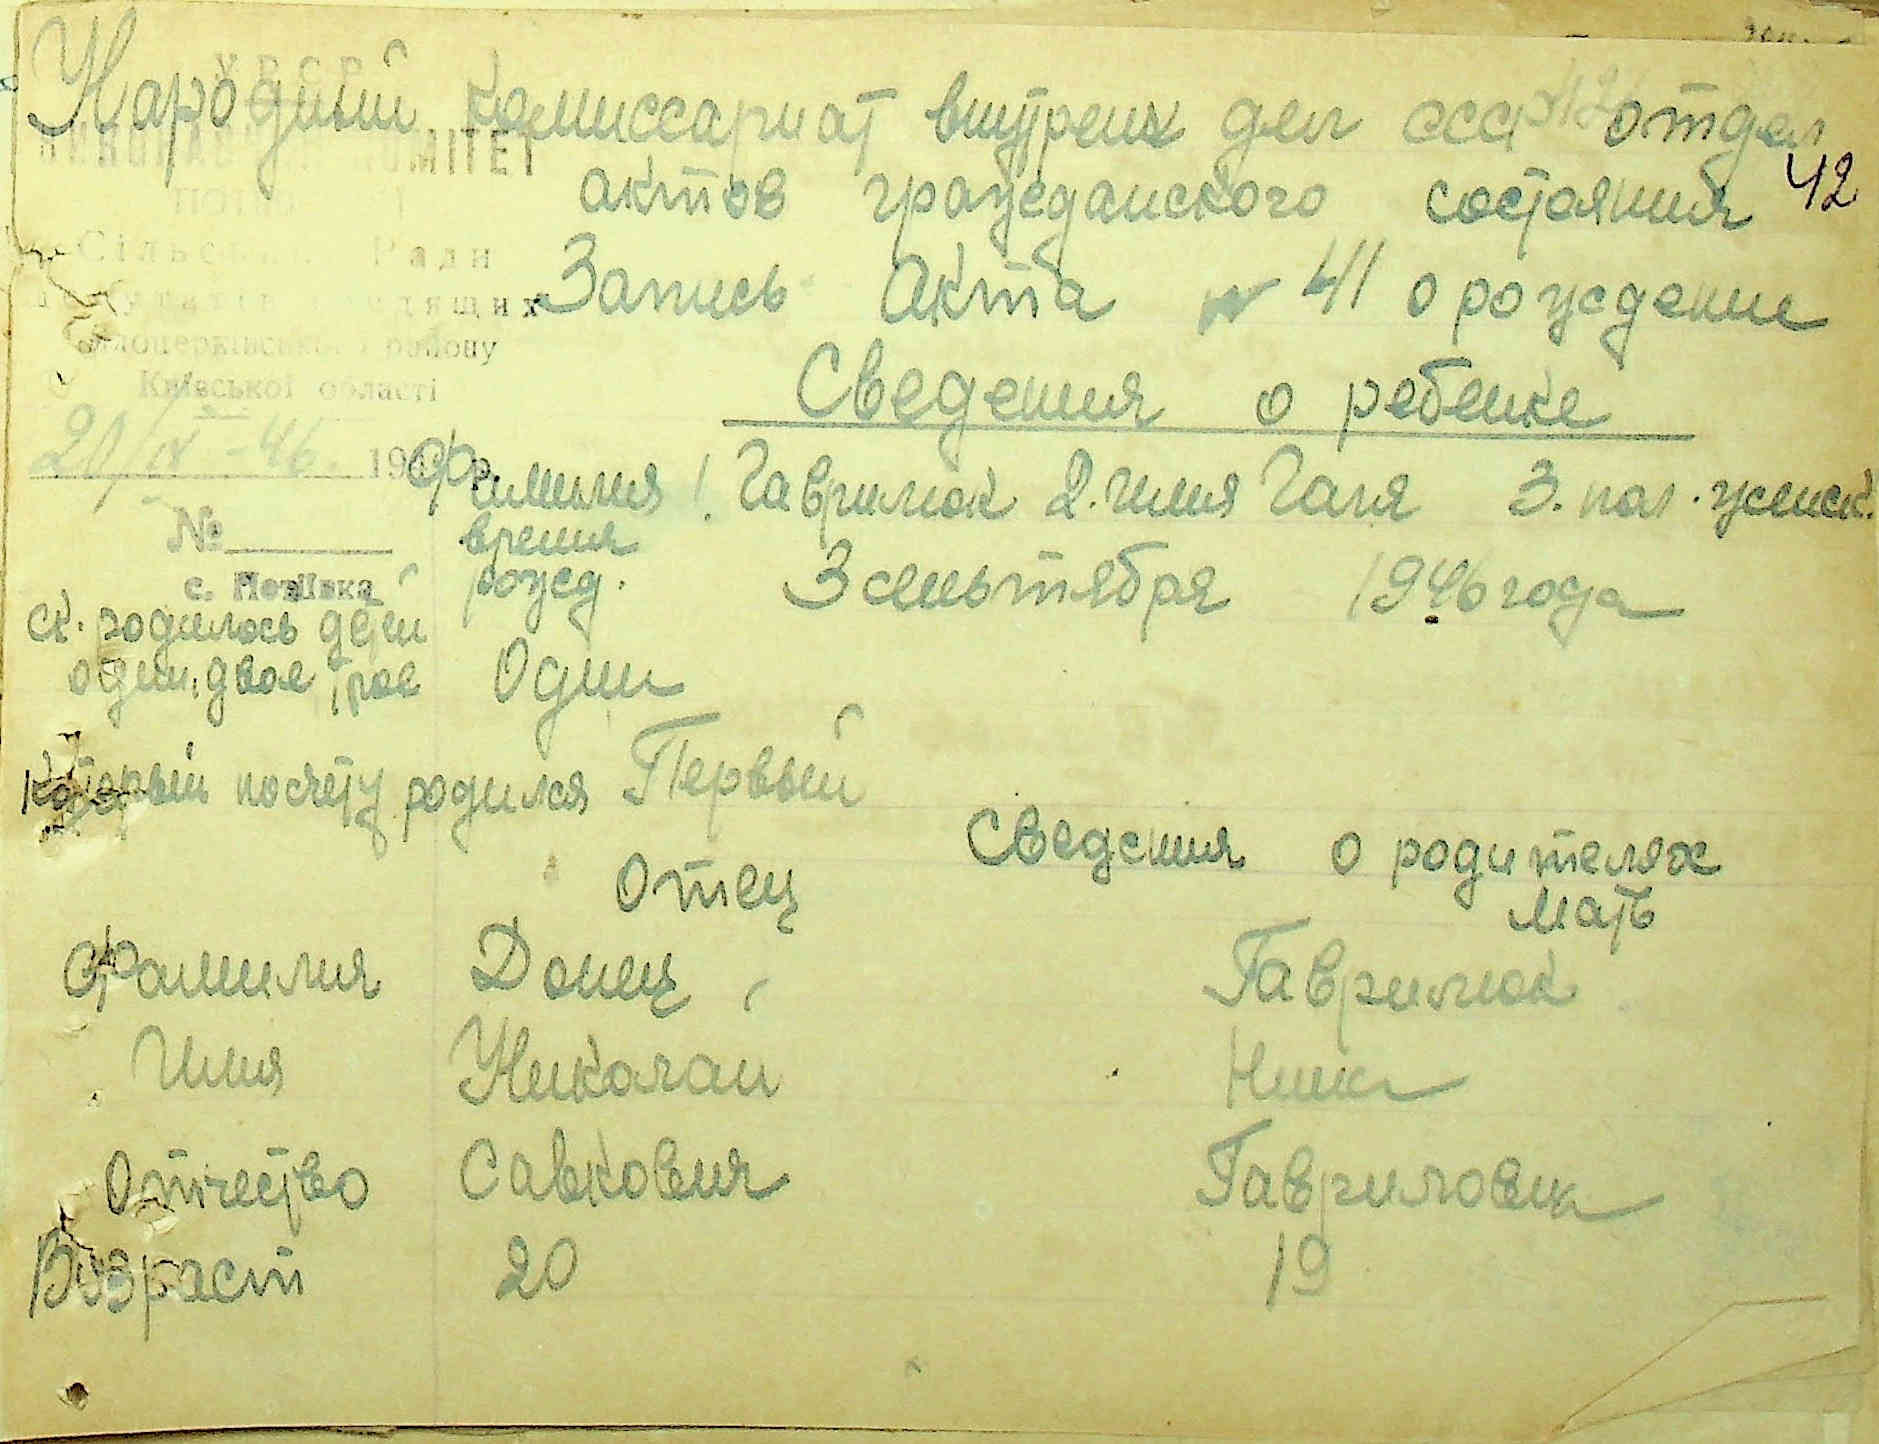 Народний Комиссариат внутрених дел ССС отдел
42
актов гражданского состояния
Запись Акта № 41 о рождение
УРСР
КОМІТЕТ
Сільської Ради
трудящих
Білоцерківського району
Київської області
20/IX - 46. 194 р.
№
с.
Сведения о ребенке
Фамилия 1. Гаврилюк 2. имя Галя 3. пол. женск.
время рожд. 3 сеньтября 1946 года
ск. родилось детей
один, двое трое Один
Который посчету родился Первый
Сведения о родителях
Отец Мать
Фамилия Донец Гаврилюк
Имя Николай Нина
Отчество Савкович Гавриловна
Возраст 20 19